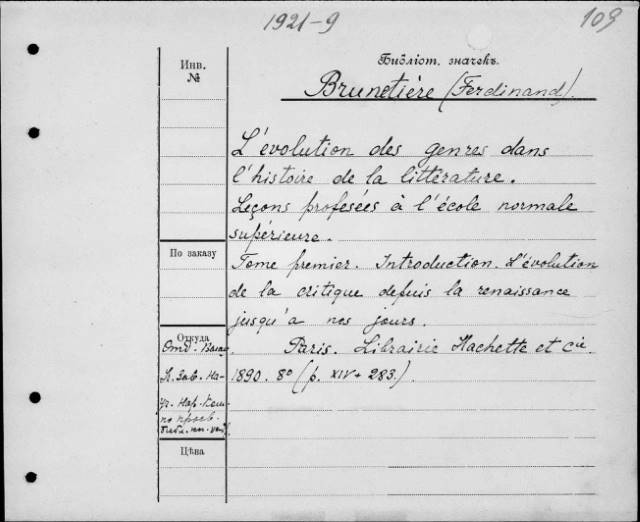 1921-9
109
Инв.
№
Библіот. значекъ.
Brunetière (Ferdinand).
L'évolution des genres dans
l'histoire de la littérature.
Leçons profesées à l'école normale
supérieure.
По заказу
Tome premier. Introduction. L'évolution
de la critique depuis la renaissance
jusqu'a nos jours.
Откуда
Paris. Librairie Hachette et Cie.
1890. 8° (p. XIV + 283.)
Цѣна